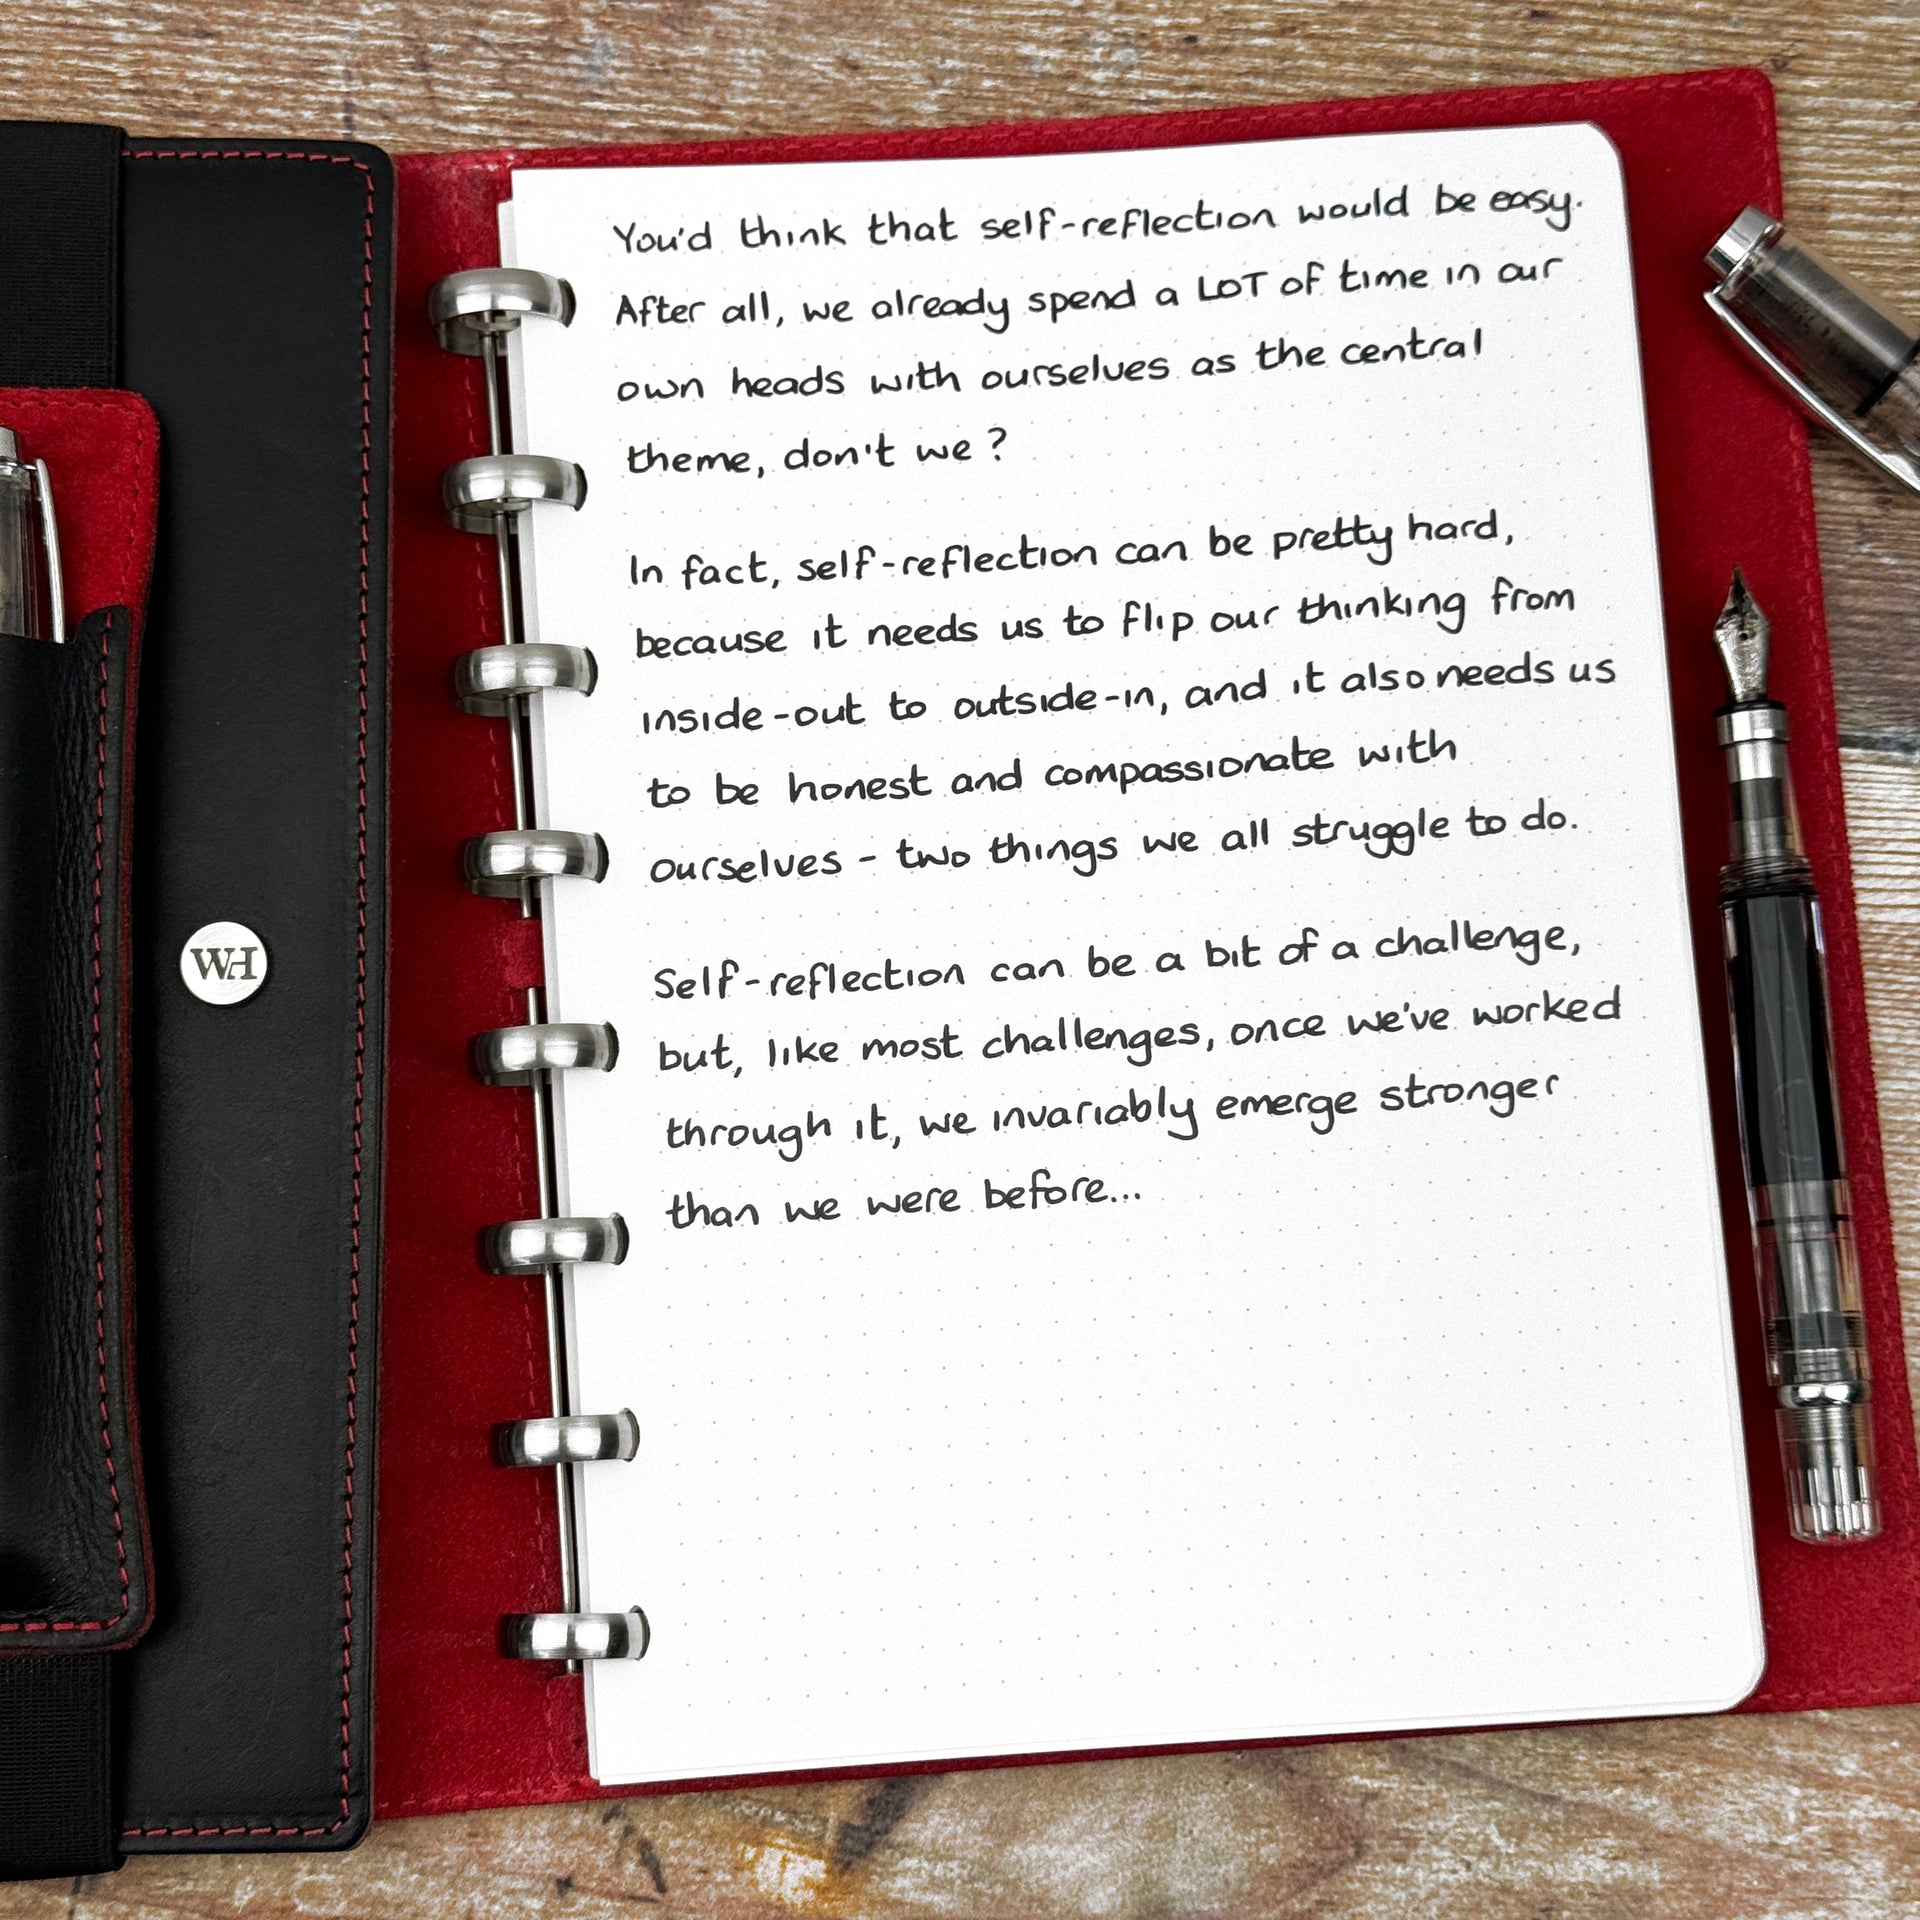 You'd think that self-reflection would be easy.
After all, we already spend a LOT of time in our
own heads with ourselves as the central
theme, don't we?
In fact, self-reflection can be pretty hard,
because it needs us to flip our thinking from
inside-out to outside-in, and it also needs us
to be honest and compassionate with
ourselves - two things we all struggle to do.
Self-reflection can be a bit of a challenge,
but, like most challenges, once we've worked
through it, we invariably emerge stronger
than we were before...
WH